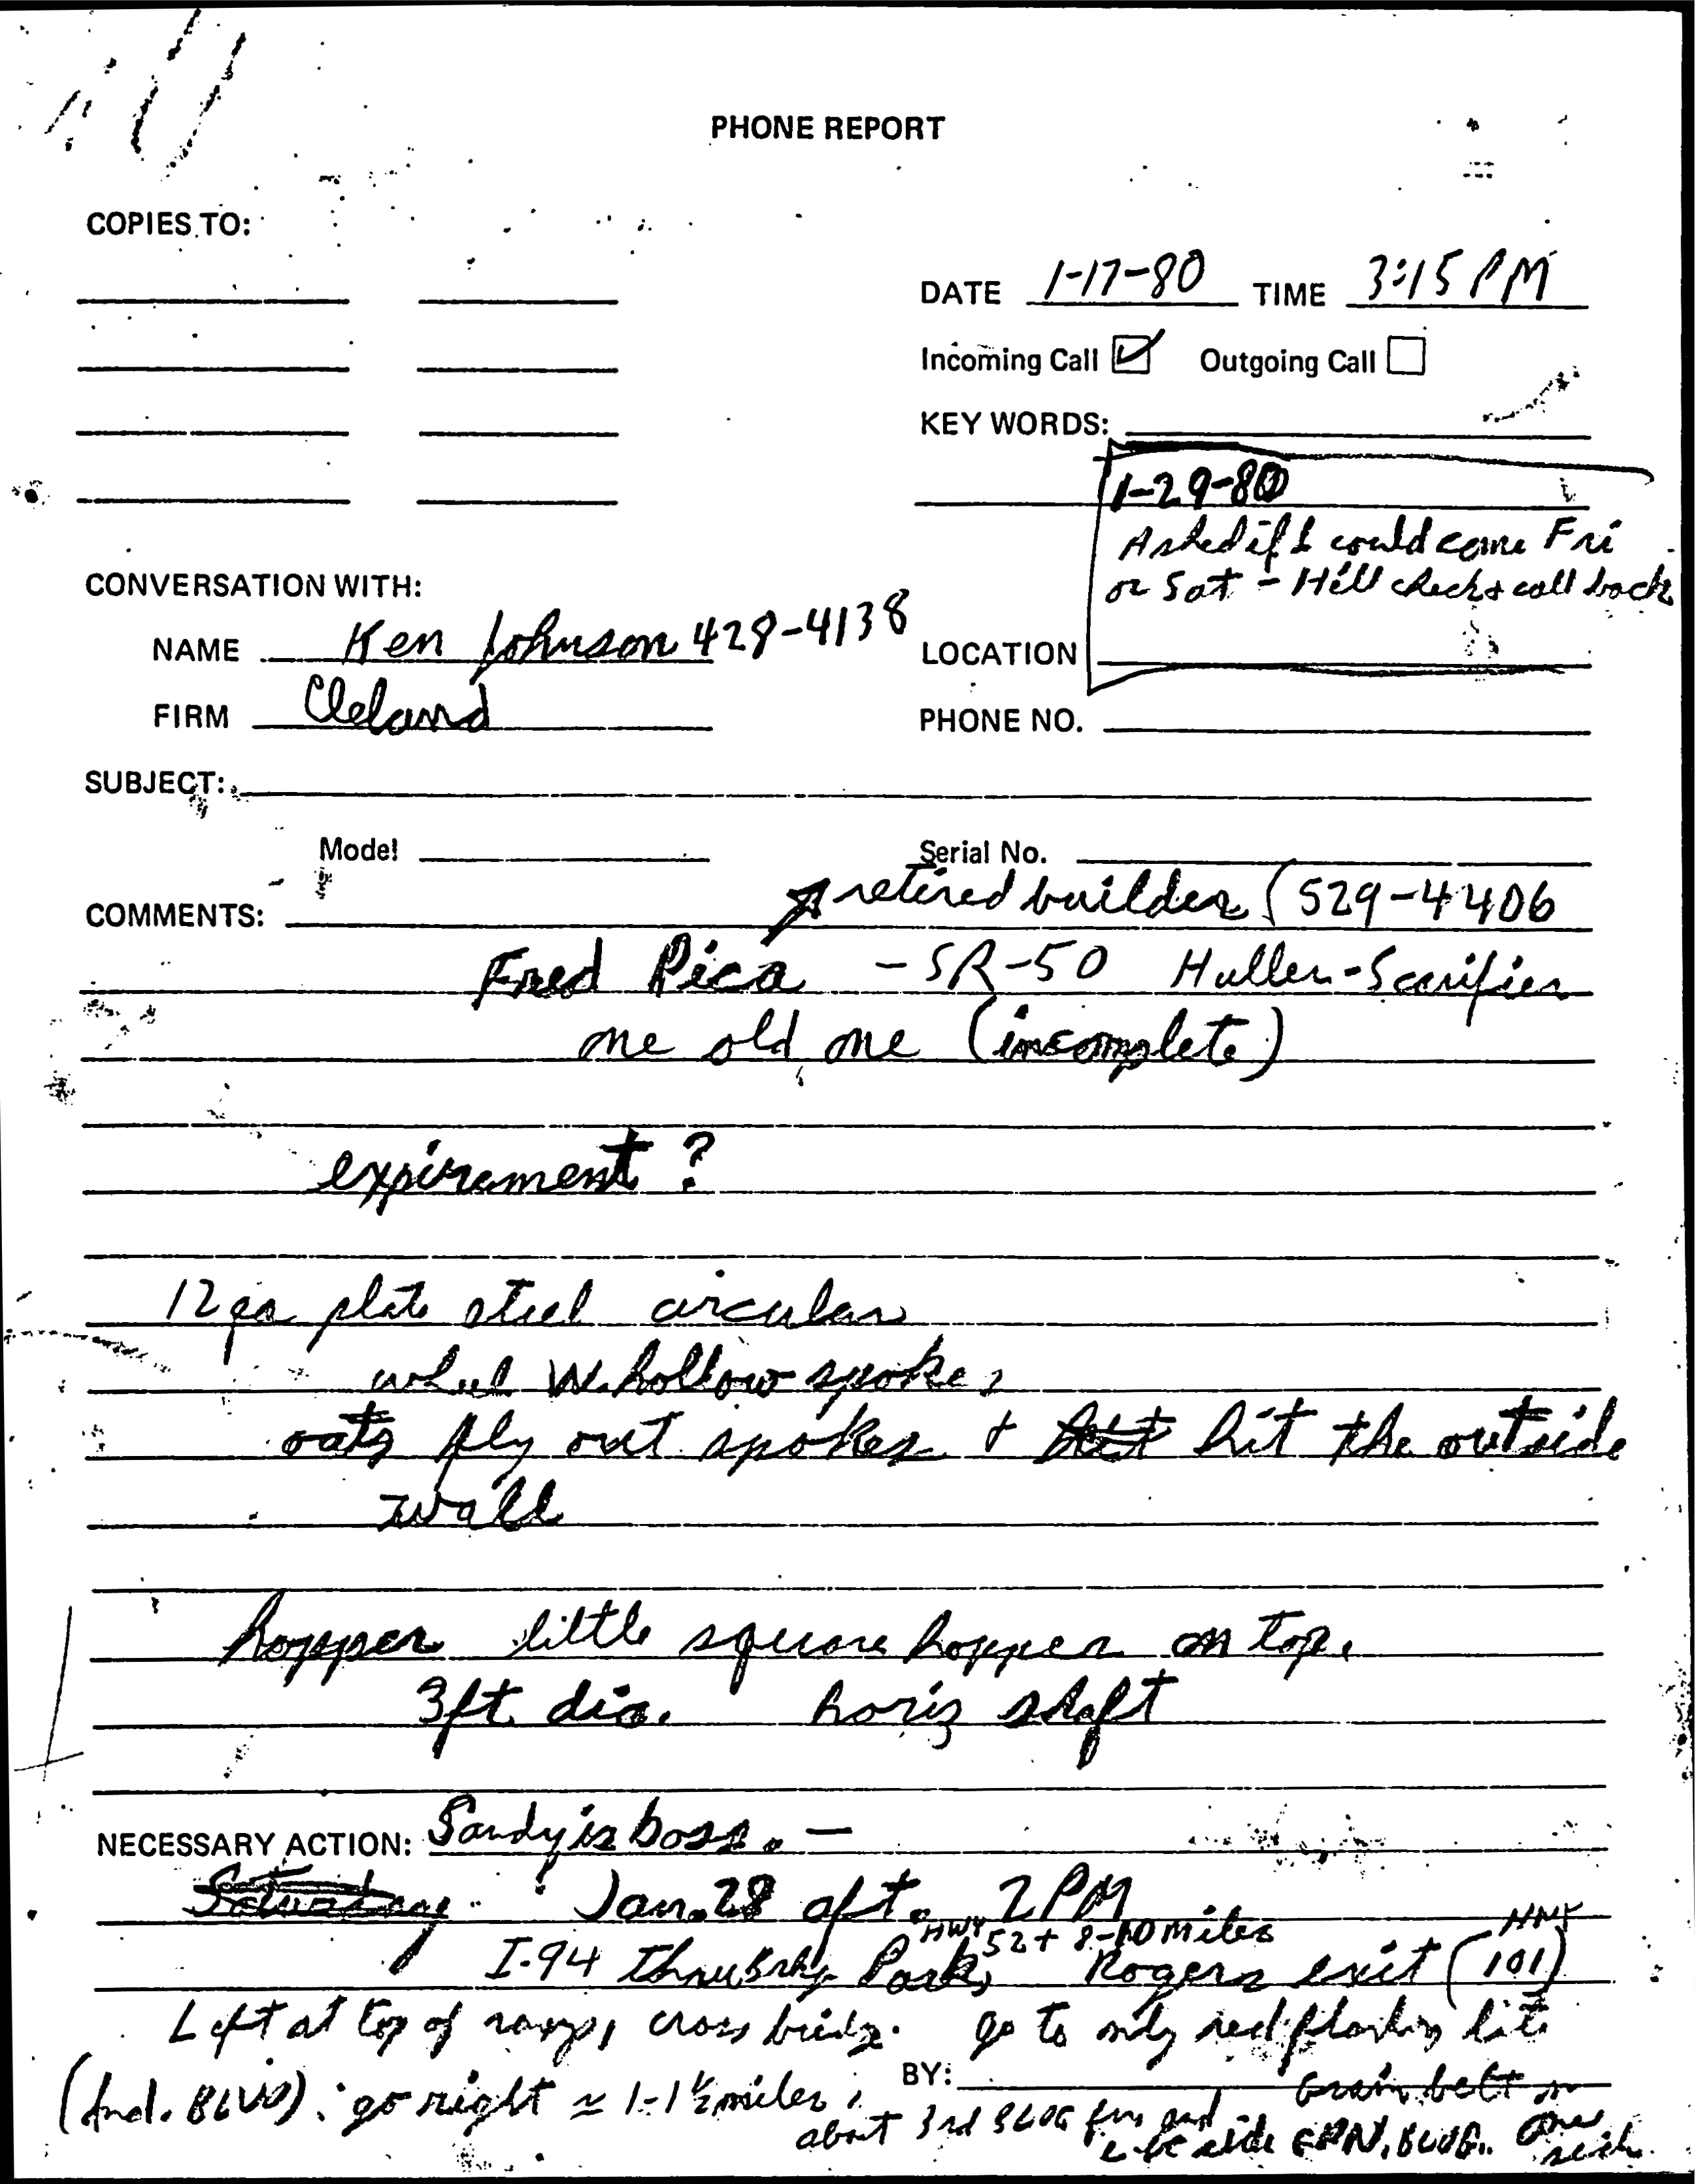 PHONE REPORT
COPIES TO:
DATE 1-17-80 TIME 3:15 PM
Incoming Call ☑ Outgoing Call ☐
KEY WORDS:
1-29-80
Asked if I could come Fri
or Sat - He'll check & call back
CONVERSATION WITH:
NAME Ken Johnson 428-4138
LOCATION
FIRM Cleland
PHONE NO.
SUBJECT:
Model
Serial No.
COMMENTS: retired builder (529-4406
Fred Pica - SR-50 Huller-Scarifier
one old one (incomplete)
expirement?
12 ga plate steel circular
wheel W. hollow spokes
oats fly out spokes + hit the outside
wall
hopper little square hopper on top.
3ft dia. horiz shaft
NECESSARY ACTION: Sandy is boss. -
Saturday Jan. 28 aft. 2 PM
HWY 52 + 8-10 miles HWY
I-94 thru Park, Rogers exit (101)
Left at top of ramp, cross bridge. go to only red flashing lite
(Ind. BLVD). go right ≈ 1-1½ miles,
BY:
Grain belt on
about 3rd BLDG side BLDG. one